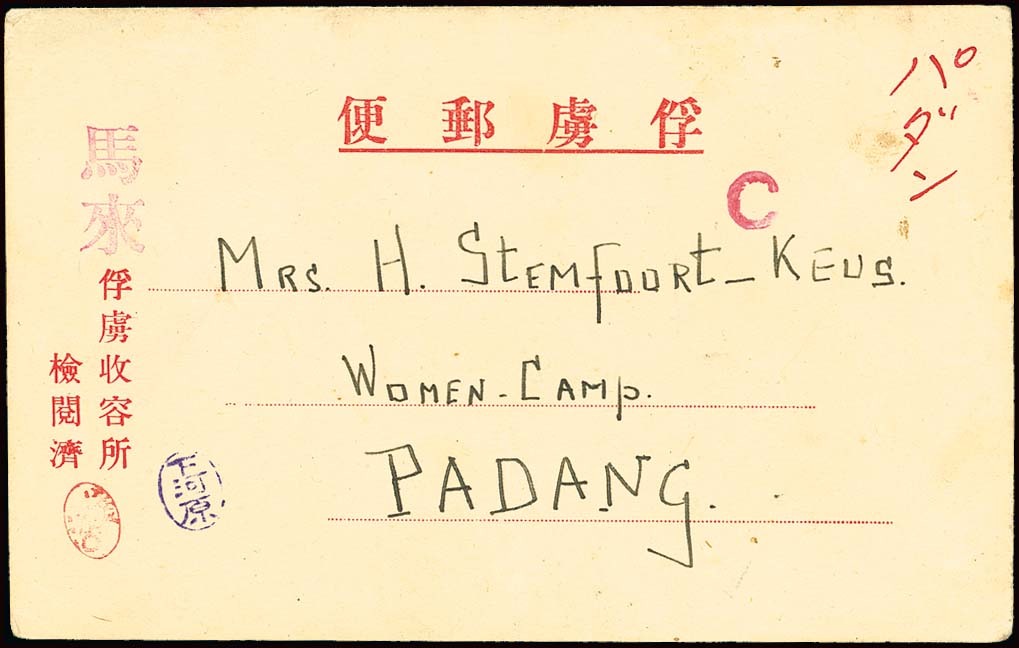 俘虜郵便
パダン
C
馬來
俘虜收容所
檢閲濟
下河原
Mrs. H. Stemfoort-Keus.
Women-Camp.
Padang.